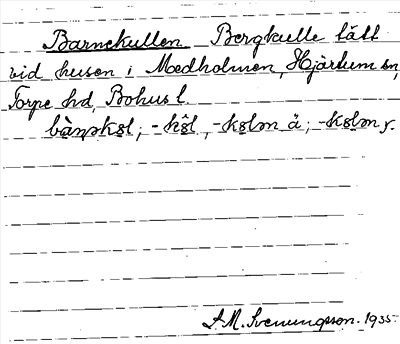 Barnekullen Bergkulle tätt
vid husen i Medholmen, Hjärtum sn,
Torpe hd, Bohus l.
-kəl, -kələn å; -kələn y.
S.M. Svenungsson. 1935.